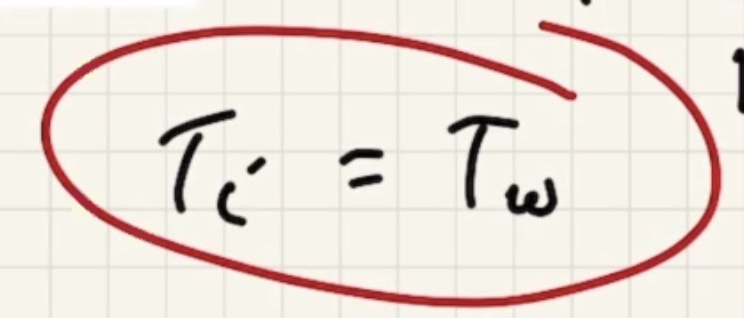 Ti = Tw